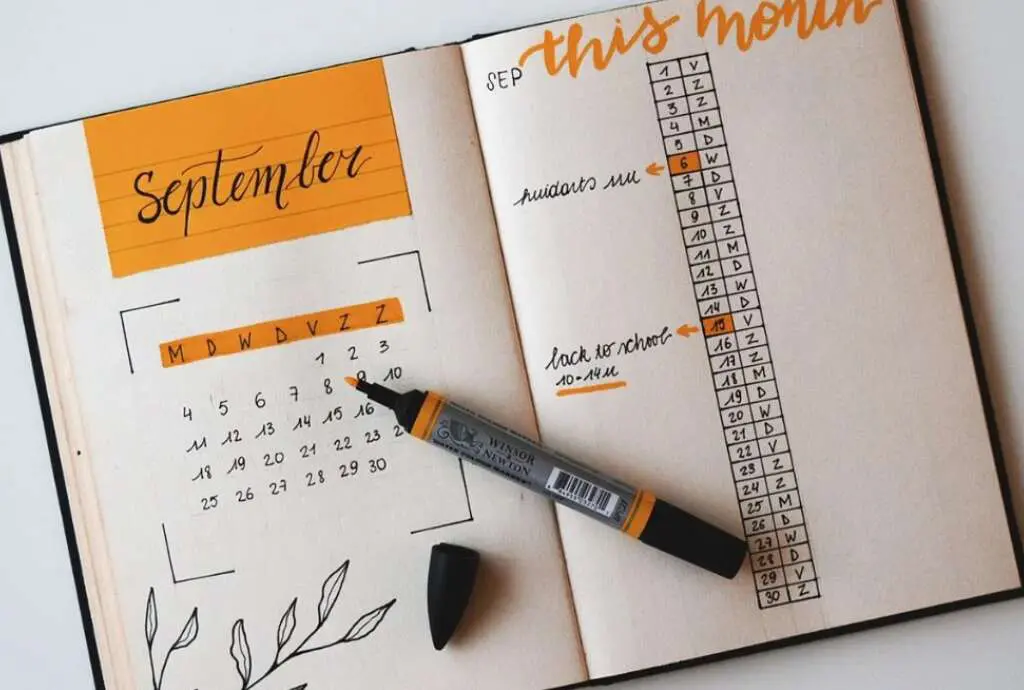 September
M D W D V Z Z
1 2 3
4 5 6 7 8 9 10
11 12 13 14 15 16
18 19 20 21 22 23 2
25 26 27 28 29 30
this month
SEP
1 V
2 Z
3 Z
4 M
5 D
6 W
huidarts 11u
7 D
8 V
9 Z
10 Z
11 M
12 D
13 W
14 D
15 V
back to school
10-14u
16 Z
17 Z
18 M
19 D
20 W
21 D
22 V
23 Z
24 Z
25 M
26 D
27 W
28 D
29 V
30 Z
WINSOR
&
NEWTON